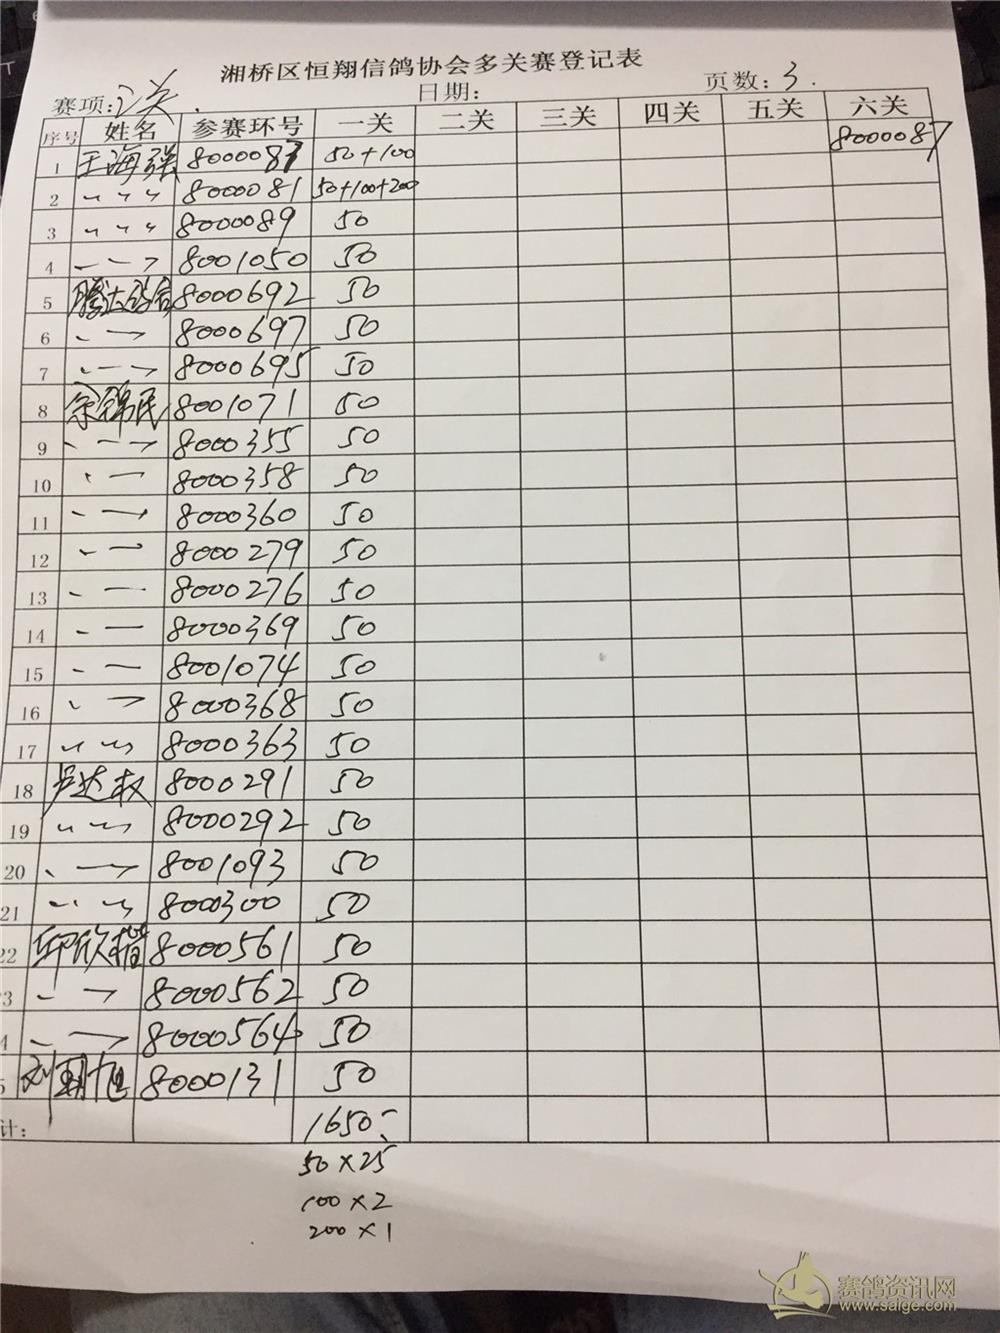 湘桥区恒翔信鸽协会多关赛登记表
赛项:二关. 日期: 页数:3.
序号 姓名 参赛环号 一关 二关 三关 四关 五关 六关
1 王海强 8000087 50+100 8000087
2 〃 〃 〃 8000081 50+100+200
3 〃 〃 〃 8000089 50
4 8001050 50
5 腾达鸽舍 8000692 50
6 8000697 50
7 8000695 50
8 余锦民 8001071 50
9 8000355 50
10 8000358 50
11 8000360 50
12 8000279 50
13 8000276 50
14 8000369 50
15 8001074 50
16 8000368 50
17 〃 〃 8000363 50
18 卢达权 8000291 50
19 〃 〃 8000292 50
20 8001093 50
21 〃 〃 8000300 50
22 邱欣楷 8000561 50
3 8000562 50
4 8000564 50
5 刘朝旭 8000131 50
计: 1650-
50×25
100×2
200×1
赛鸽资讯网
www.saige.com